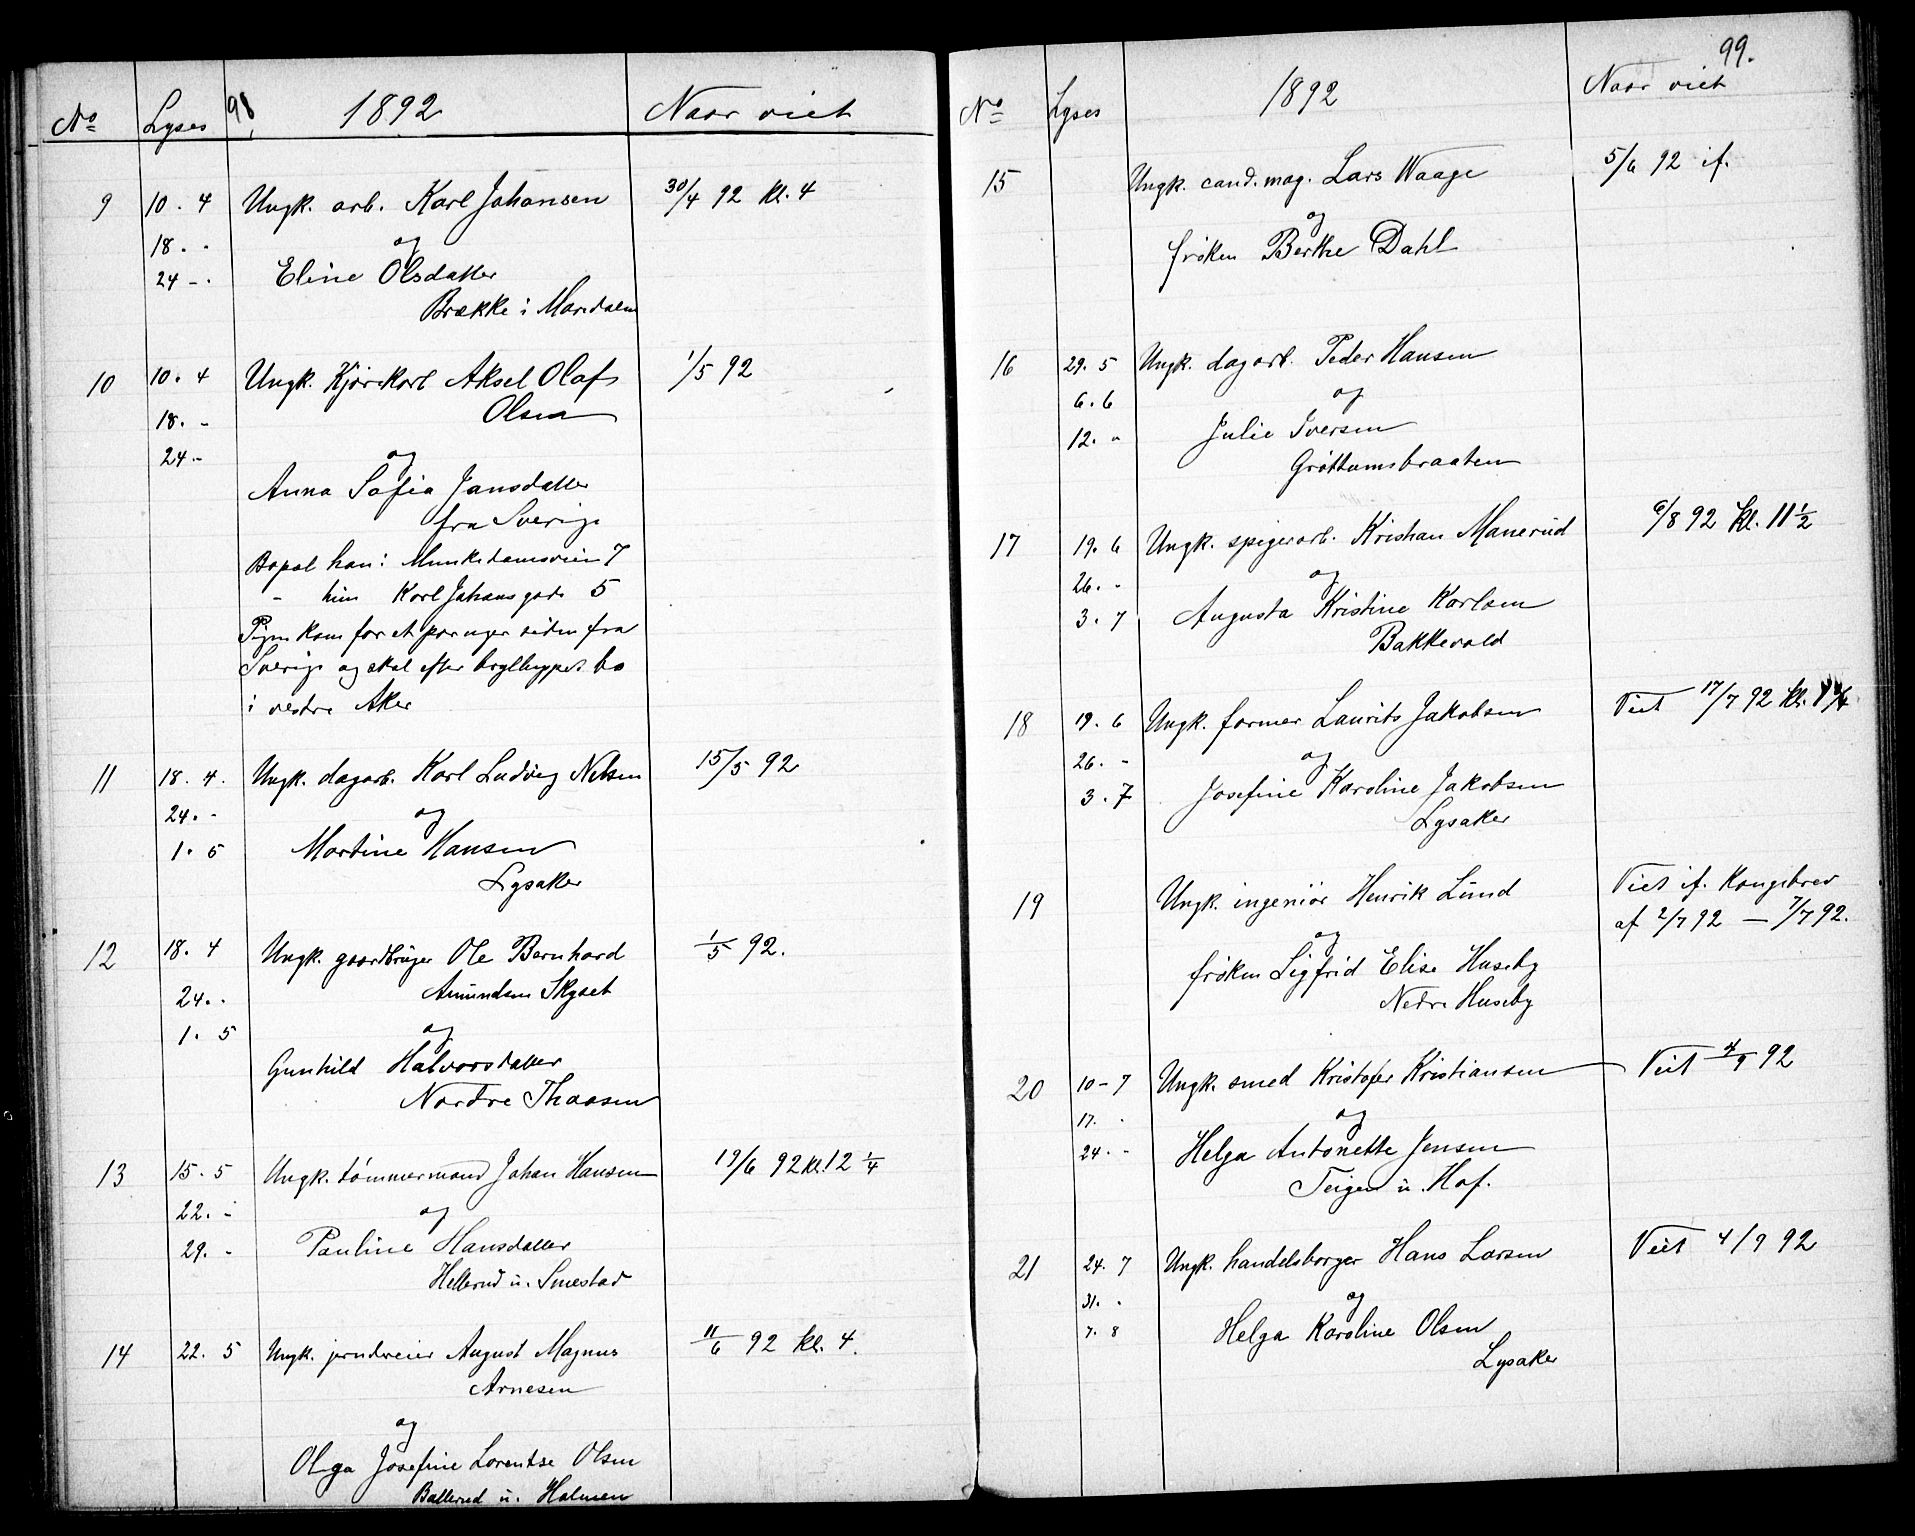 98.
No Lyses 1892 Naar viet
9 10. 4 Ungk. arb. Karl Johansen 30/4 92 kl. 4
18. - og
24 - . Eline Olsdatter
Brække i Maridalen
10 10. 4 Ungk. Kjørekarl Aksel Olaf 1/5 92
18. - Olsen
24 - og
Anna Sofia Jansdatter
fra Sverige
Bopæl han: Munkedamsveien 7
- hun Karl Johans gade 5
Pigen kom for et par uger siden fra
Sverige og skal efter bryllupet bo
i vestre Aker
11 18. 4. Ungk. dagarb. Karl Ludvig Nelsen 15/5 92
24. - og
1. 5 Martine Hansen
Lysaker
12 18. 4 Ungk. gaardbruger Ole Bernhard 1/5 92.
24. - Amundsen Skyset
1. 5 og
Gunhild Halvorsdatter
Nordre Thaasen
13 15. 5 Ungk. tømmermand Johan Hansen 19/6 92 kl. 12 1/4
22. - og
29. - Pauline Hansdatter
Hellerud u. Smestad
14 22. 5 Ungk. jerndreier August Magnus 11/6 92 kl. 4.
Arnesen
og
Olga Josefine Lorentse Olsen
Ballerud u. Holmen
99.
No Lyses 1892 Naar viet
15 Ungk. cand. mag. Lars Waage 5/6 92 if.
og
frøken Berthe Dahl
16 29. 5 Ungk. dagarb. Peder Hansen
6. 6 og
12. - Julie Iversen
Grøttumsbraaten
17 19. 6 Ungk. spigerarb. Kristian Manerud 6/8 92 kl. 11 1/2
26. - og
3. 7 Augusta Kristine Karlsen
Bakkevold
18 19. 6 Ungk. former Laurits Jakobsen Viet 17/7 92 kl.
26. - og
3. 7 Josefine Karoline Jakobsen
Lysaker
19 Ungk. ingeniør Henrik Lund Viet if. Kongebrev
af 2/7 92 — 7/7 92.
og
frøken Sigfrid Elise Huseby
Nedre Huseby
20 10 - 7 Ungk. smed Kristofer Kristiansen Viet 4/9 92
17. - og
24. - Helga Antonette Jensen
Teigen u. Hof.
21 24. 7 Ungk. handelsborger Hans Larsen Viet 4/9 92
31. - og
7. 8 Helga Karoline Olsen
Lysaker